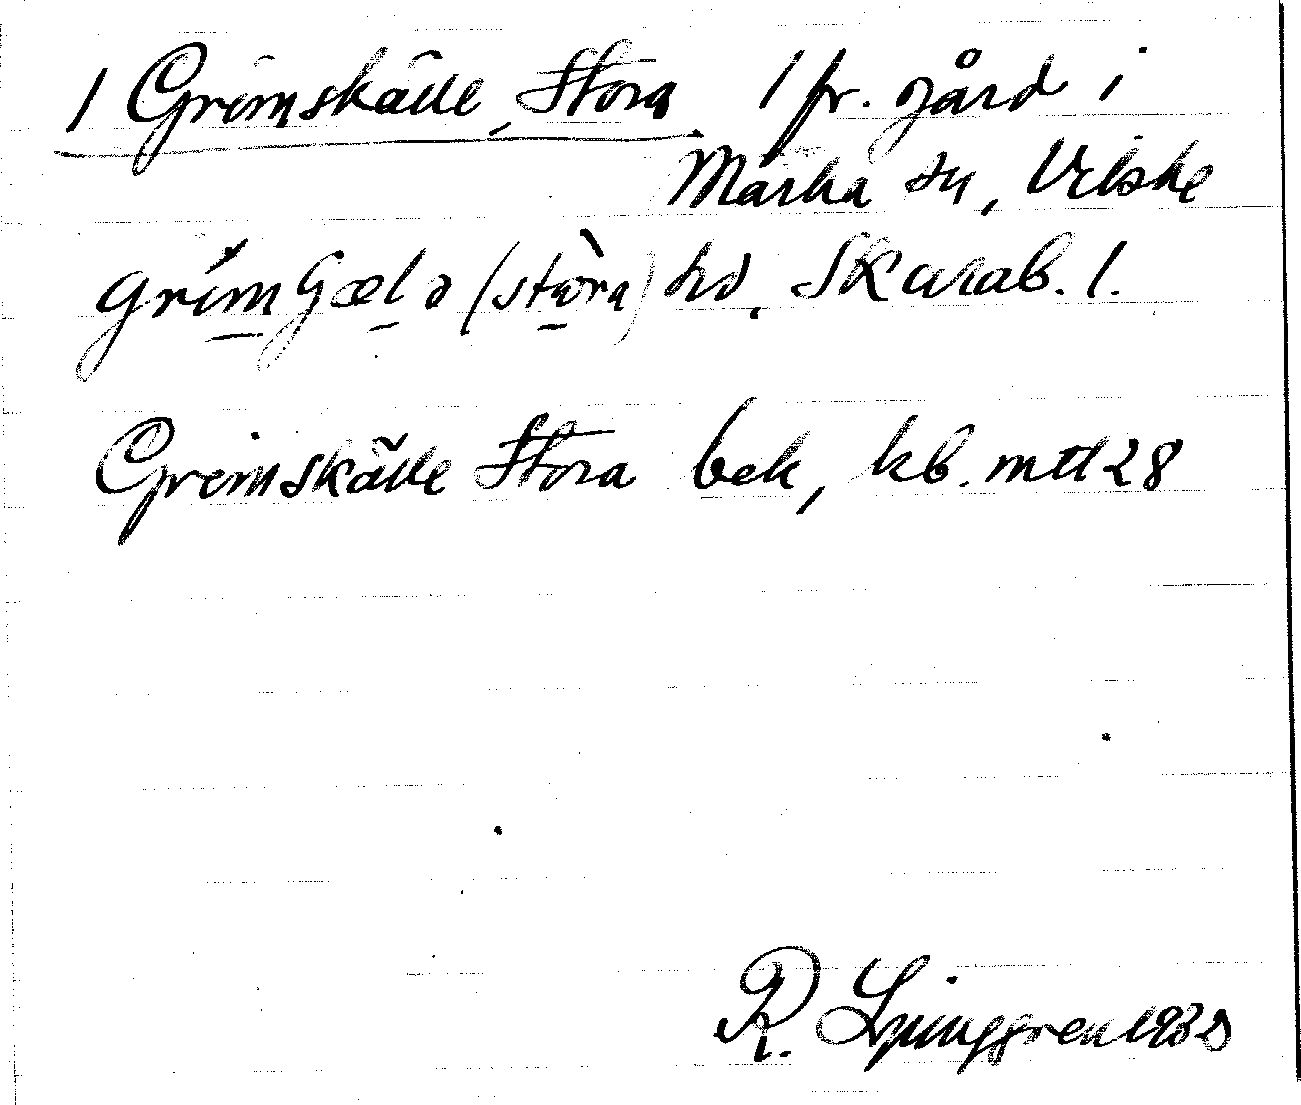 1 Grimskälle, Stora 1 fr. gård i
Marka sn, Vilske
grimʃælə (stora) hd, Skarab. l.
Grimskälle Stora bek, kb. mtl 28
R. Ljunggren